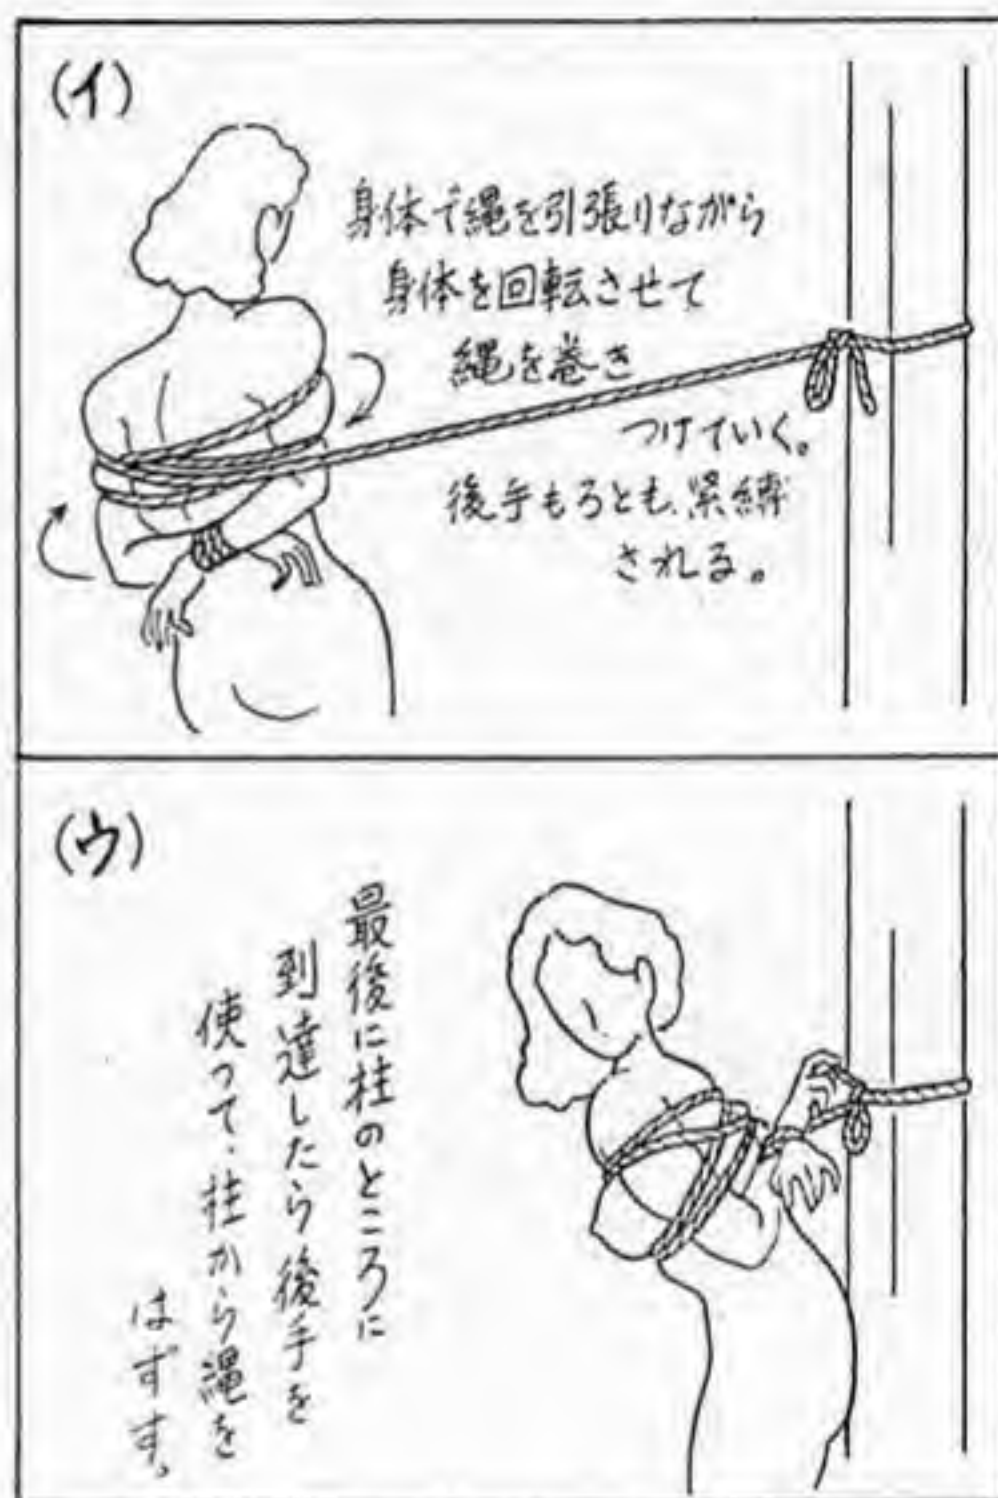 (イ)
身体で縄を引張りながら
身体を回転させて
縄を巻き
つけていく。
後手もろとも、緊縛
される。
(ウ)
最後に柱のところに
到達したら後手を
使って、柱から縄を
はずす。